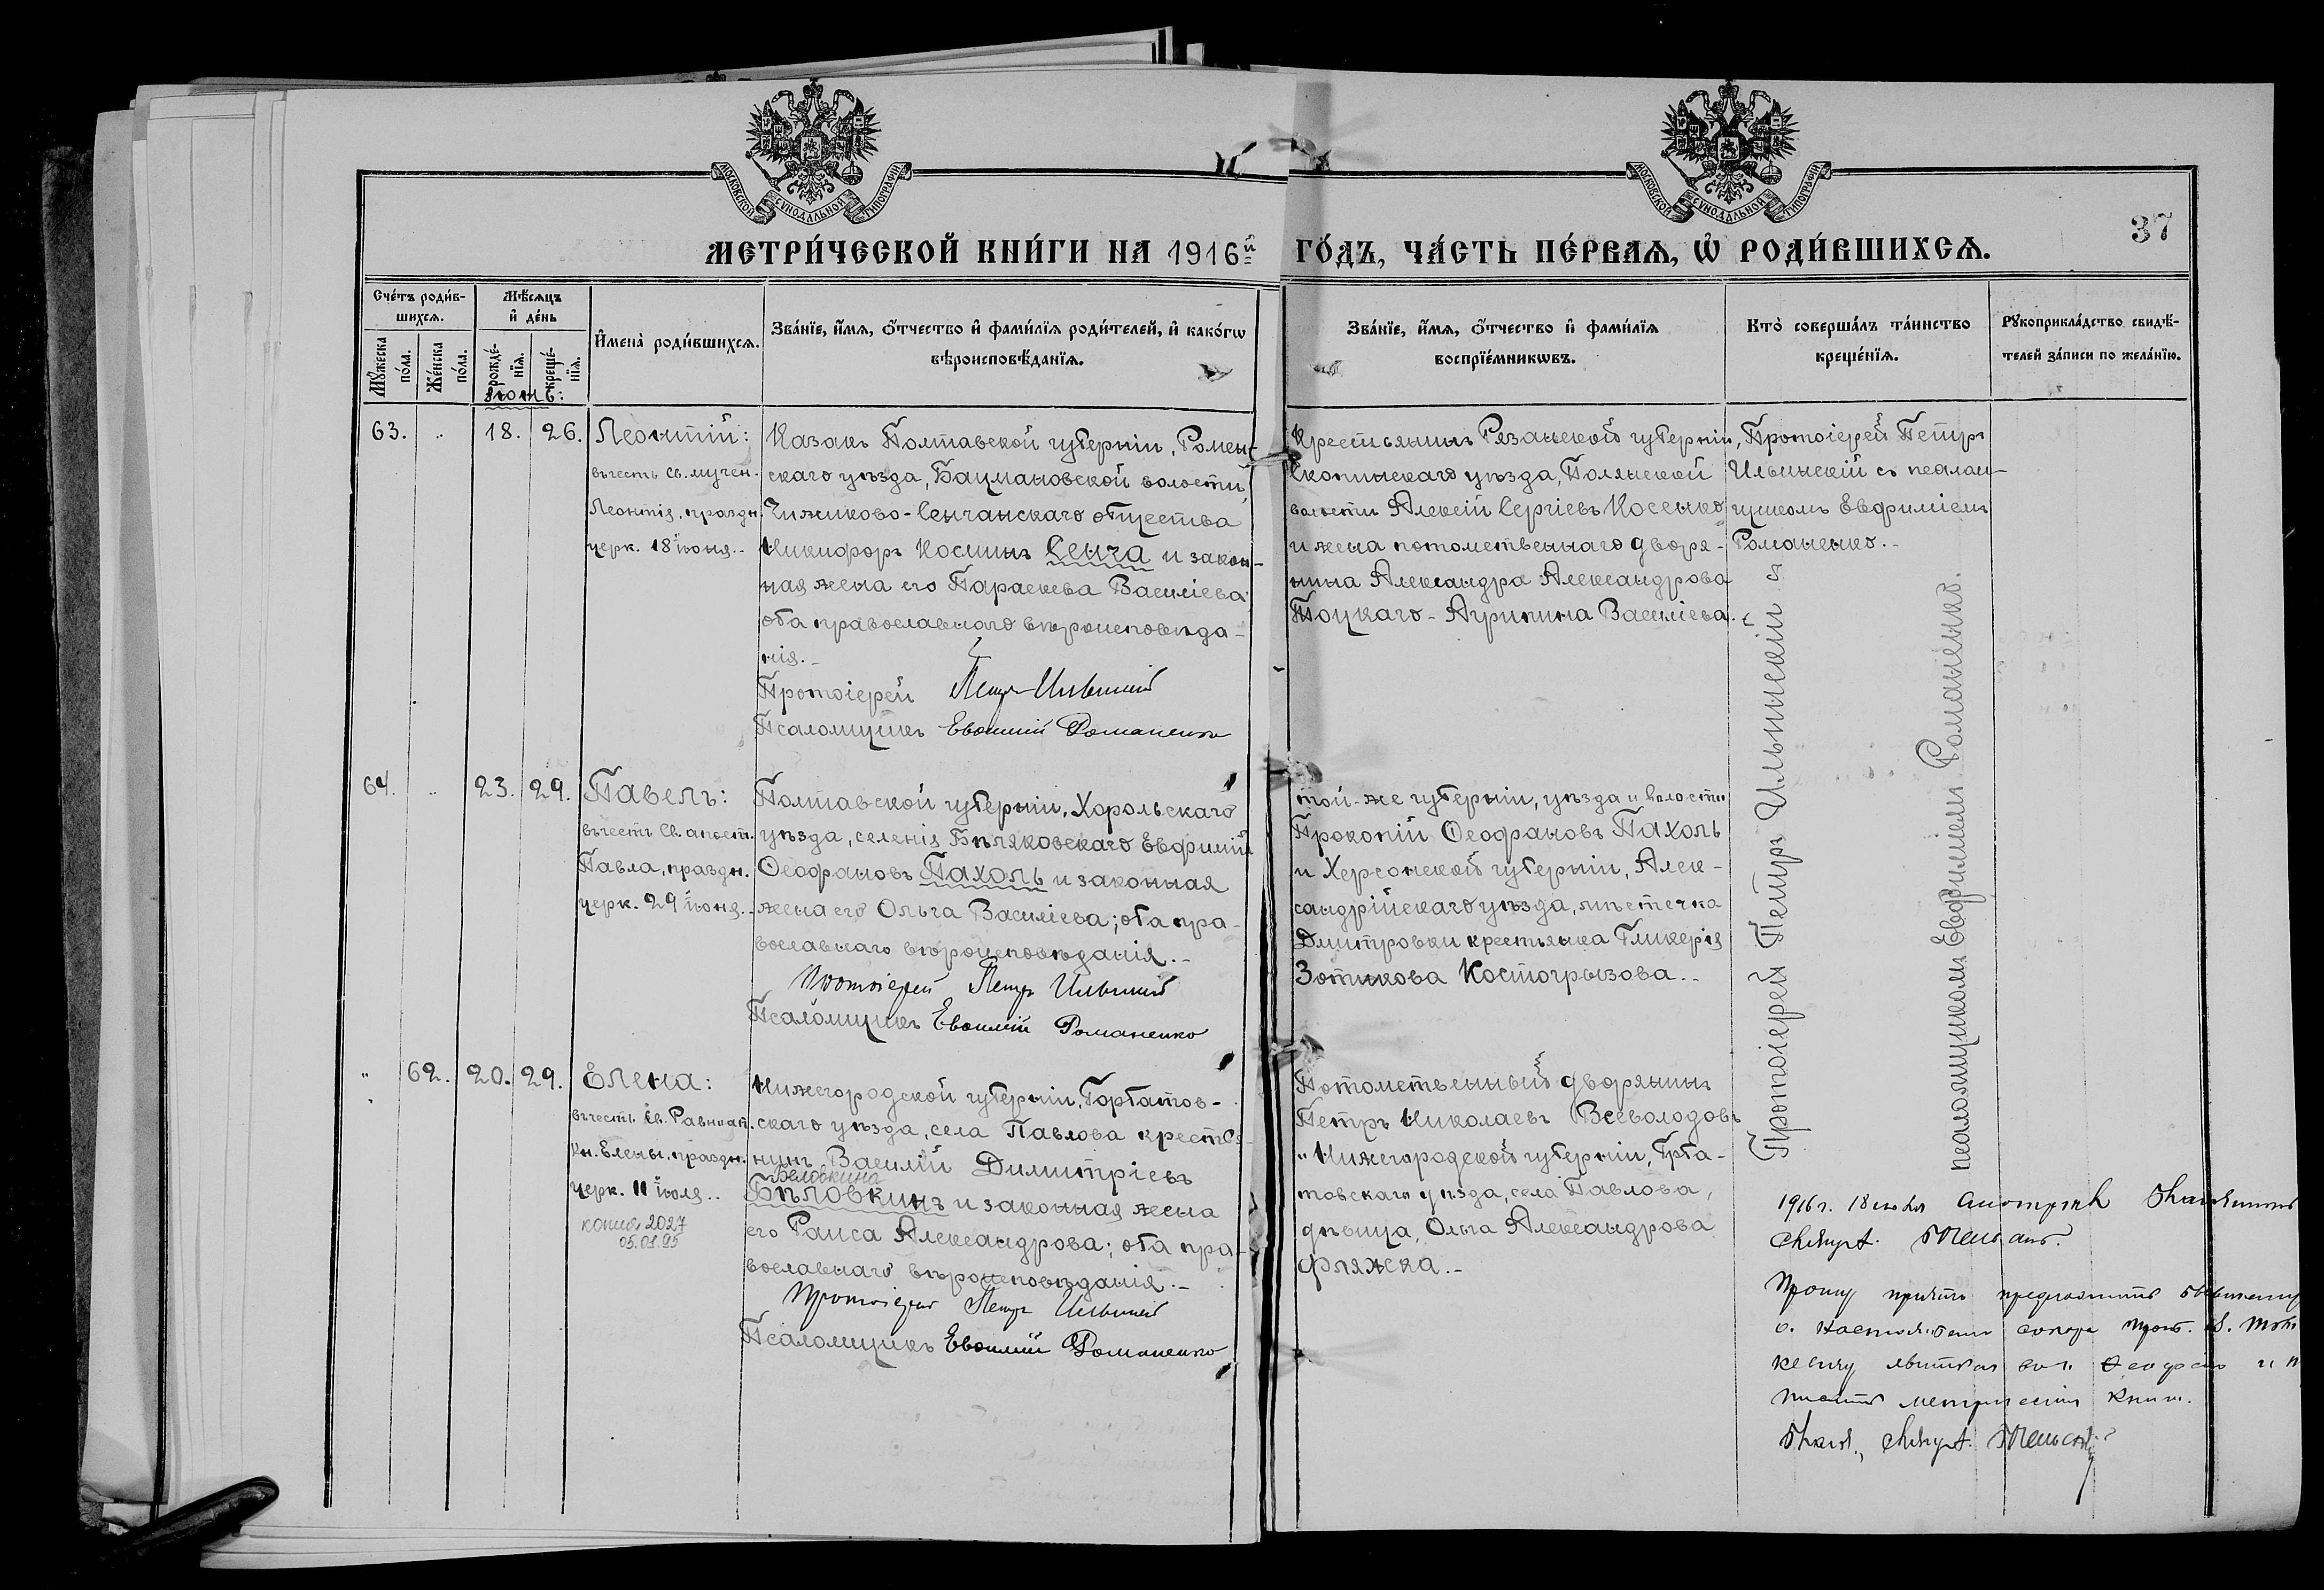 МОСКОВСКОЙ СѴНОДАЛЬНОЙ ТИПОГРАФІИ
МОСКОВСКОЙ СѴНОДАЛЬНОЙ ТИПОГРАФІИ
37
МЕТРИ́ЧЕСКОЙ КНИ́ГИ НА 1916й ГО́ДЪ, ЧА́СТЬ ПЕ́РВАѦ, Ѡ РОДИ́ВШИХСѦ.
Сче́тъ роди́в-
шихсѧ.
Мѣ́сѧцъ
и҆ де́нь
Мꙋ́жеска по́ла.
Же́нска по́ла.
рожде́-
нїѧ.
креще́-
нїѧ.
И҆мена̀ роди́вшихсѧ.
Зва́нїе, и҆́мѧ, ѻ҆́тчество и҆ фами́лїѧ роди́телей, и҆ како́гѡ
вѣроисповѣ́данїѧ.
Зва́нїе, и҆́мѧ, ѻ҆́тчество и҆ фами́лїѧ
воспрїе́мникѡвъ.
Кто̀ соверша́лъ та́инство
креще́нїѧ.
Рꙋкоприкла́дство свидѣ́-
телей за́писи по жела́нїю.
Іюнь:
63. „ 18. 26.
Леонтій:
въ честь Св. мучен.
Леонтія, праздн.
церк. 18 іюня.-
Казакъ Полтавской губерніи, Ромен-
скаго уѣзда, Бацмановской волости,
Чижиково-Сенчанскаго общества
Никифоръ Косминъ Сенча и закон-
ная жена его Параскева Василіева
оба православнаго вѣроисповѣда-
нія.-
Протоіерей Петръ Ильинскій
Псаломщикъ Евѳимій Романенко
Крестьянинъ Рязанской губерніи,
Скопинскаго уѣзда, Полянской
волости Алексій Сергіевъ Косенко
и жена потомственнаго дворя-
нина Александра Александрова
Тоцкаго - Агрипина Василіева.
Протоіерей Петръ
Ильинскій съ псалом-
щикомъ Евфиміемъ
Романенко.-
64. „ 23. 29.
Павелъ:
въ честь Св. апост.
Павла, праздн.
церк. 29 іюня.-
Полтавской губерніи, Хорольскаго
уѣзда, селенія Бѣляковскаго Евфимій
Ѳеофановъ Пахоль и законная
жена его Ольга Василіева; оба пра-
вославнаго вѣроисповѣданія.-
Протоіерей Петръ Ильинскій
Псаломщикъ Евѳимій Романенко
той-же губерніи, уѣзда и волости
Прокопій Ѳеофановъ Пахоль
и Херсонской губерніи, Алек-
сандрійскаго уѣзда, мѣстечка
Дмитровки крестьянка Гликерія
Зотикова Костогрызова.-
Протоіерей Петръ Ильинскій съ
псаломщикомъ Евфиміемъ Романенко.
„ 62. 20. 29.
Елена:
въ честь Св. Равноап.
Кн. Елены, праздн.
церк. 11 іюля..
копия 2027
05.01.95
Нижегородской губерніи, Горбатов-
скаго уѣзда, села Павлова кресть-
нинъ Василій Димитріевъ
Беловкина
Бѣловкинъ и законная жена
его Раиса Александрова; оба пра-
вославнаго вѣроисповѣданія.-
Протоіерей Петръ Ильинскій
Псаломщикъ Евѳимій Романенко
Потомственный дворянинъ
Петръ Николаевъ Всеволодовъ
и Нижегородской губерніи, Горба-
товскаго уѣзда, села Павлова,
дѣвица, Ольга Александрова
Фляжка.-
1916 г. 18 июля
Прошу предложить
о.
метрическія книги.